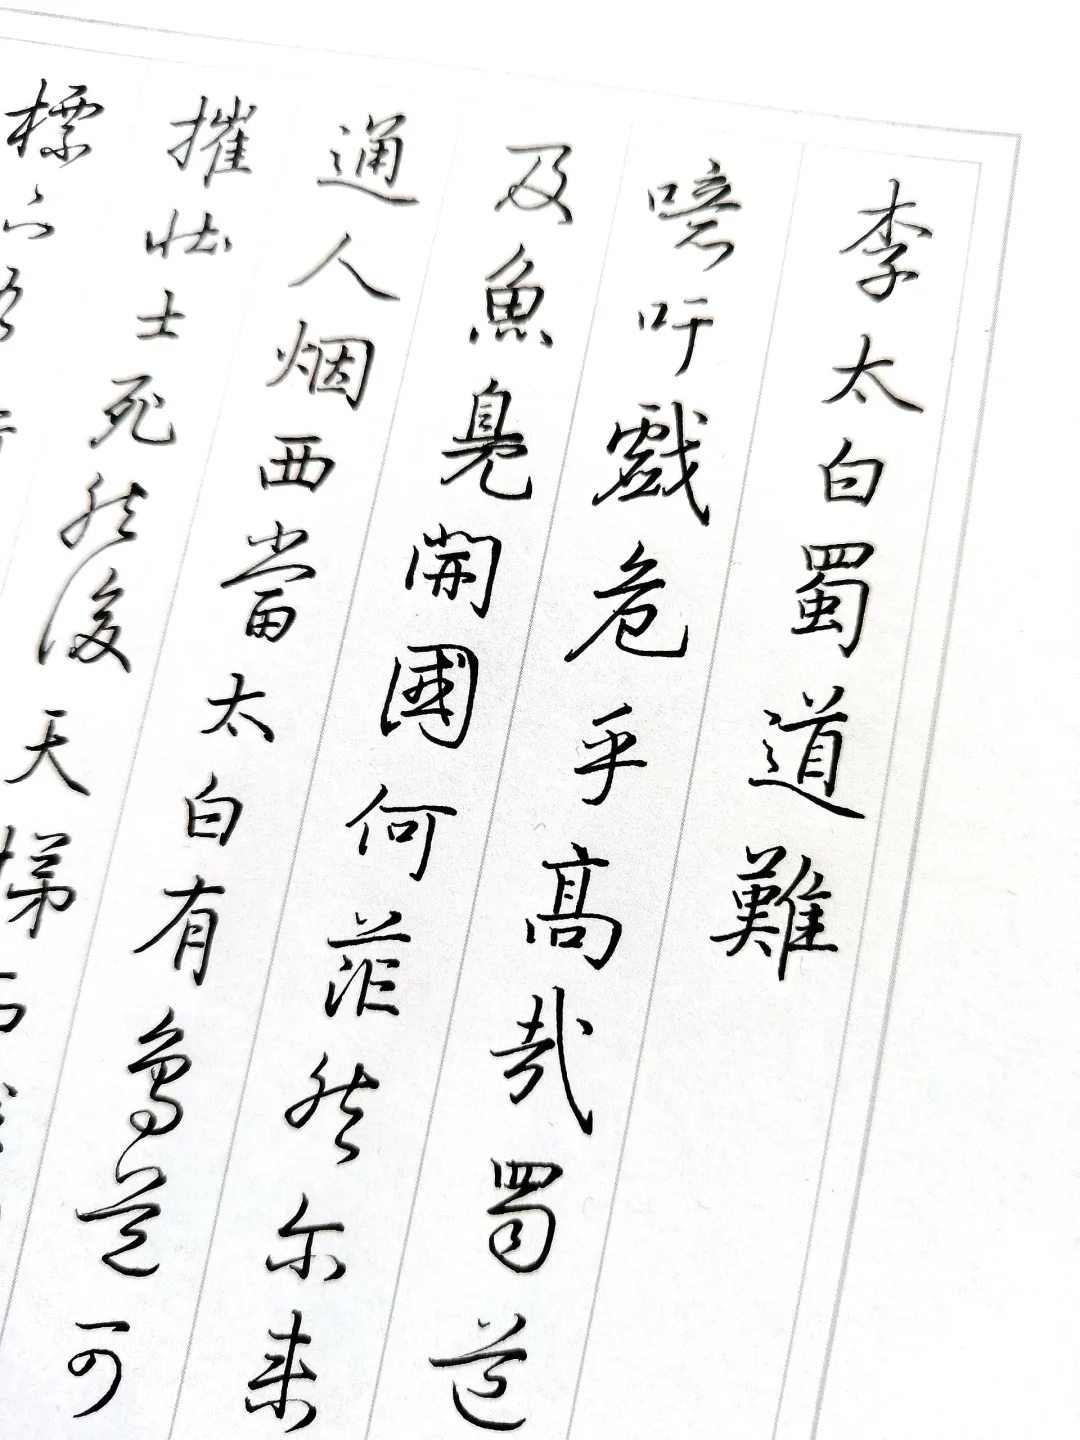 李太白蜀道難
噫吁戲危乎高哉蜀道
及魚鳧開國何茫然尔来
通人烟西當太白有鳥道可
摧壯士死然後天梯石
標下